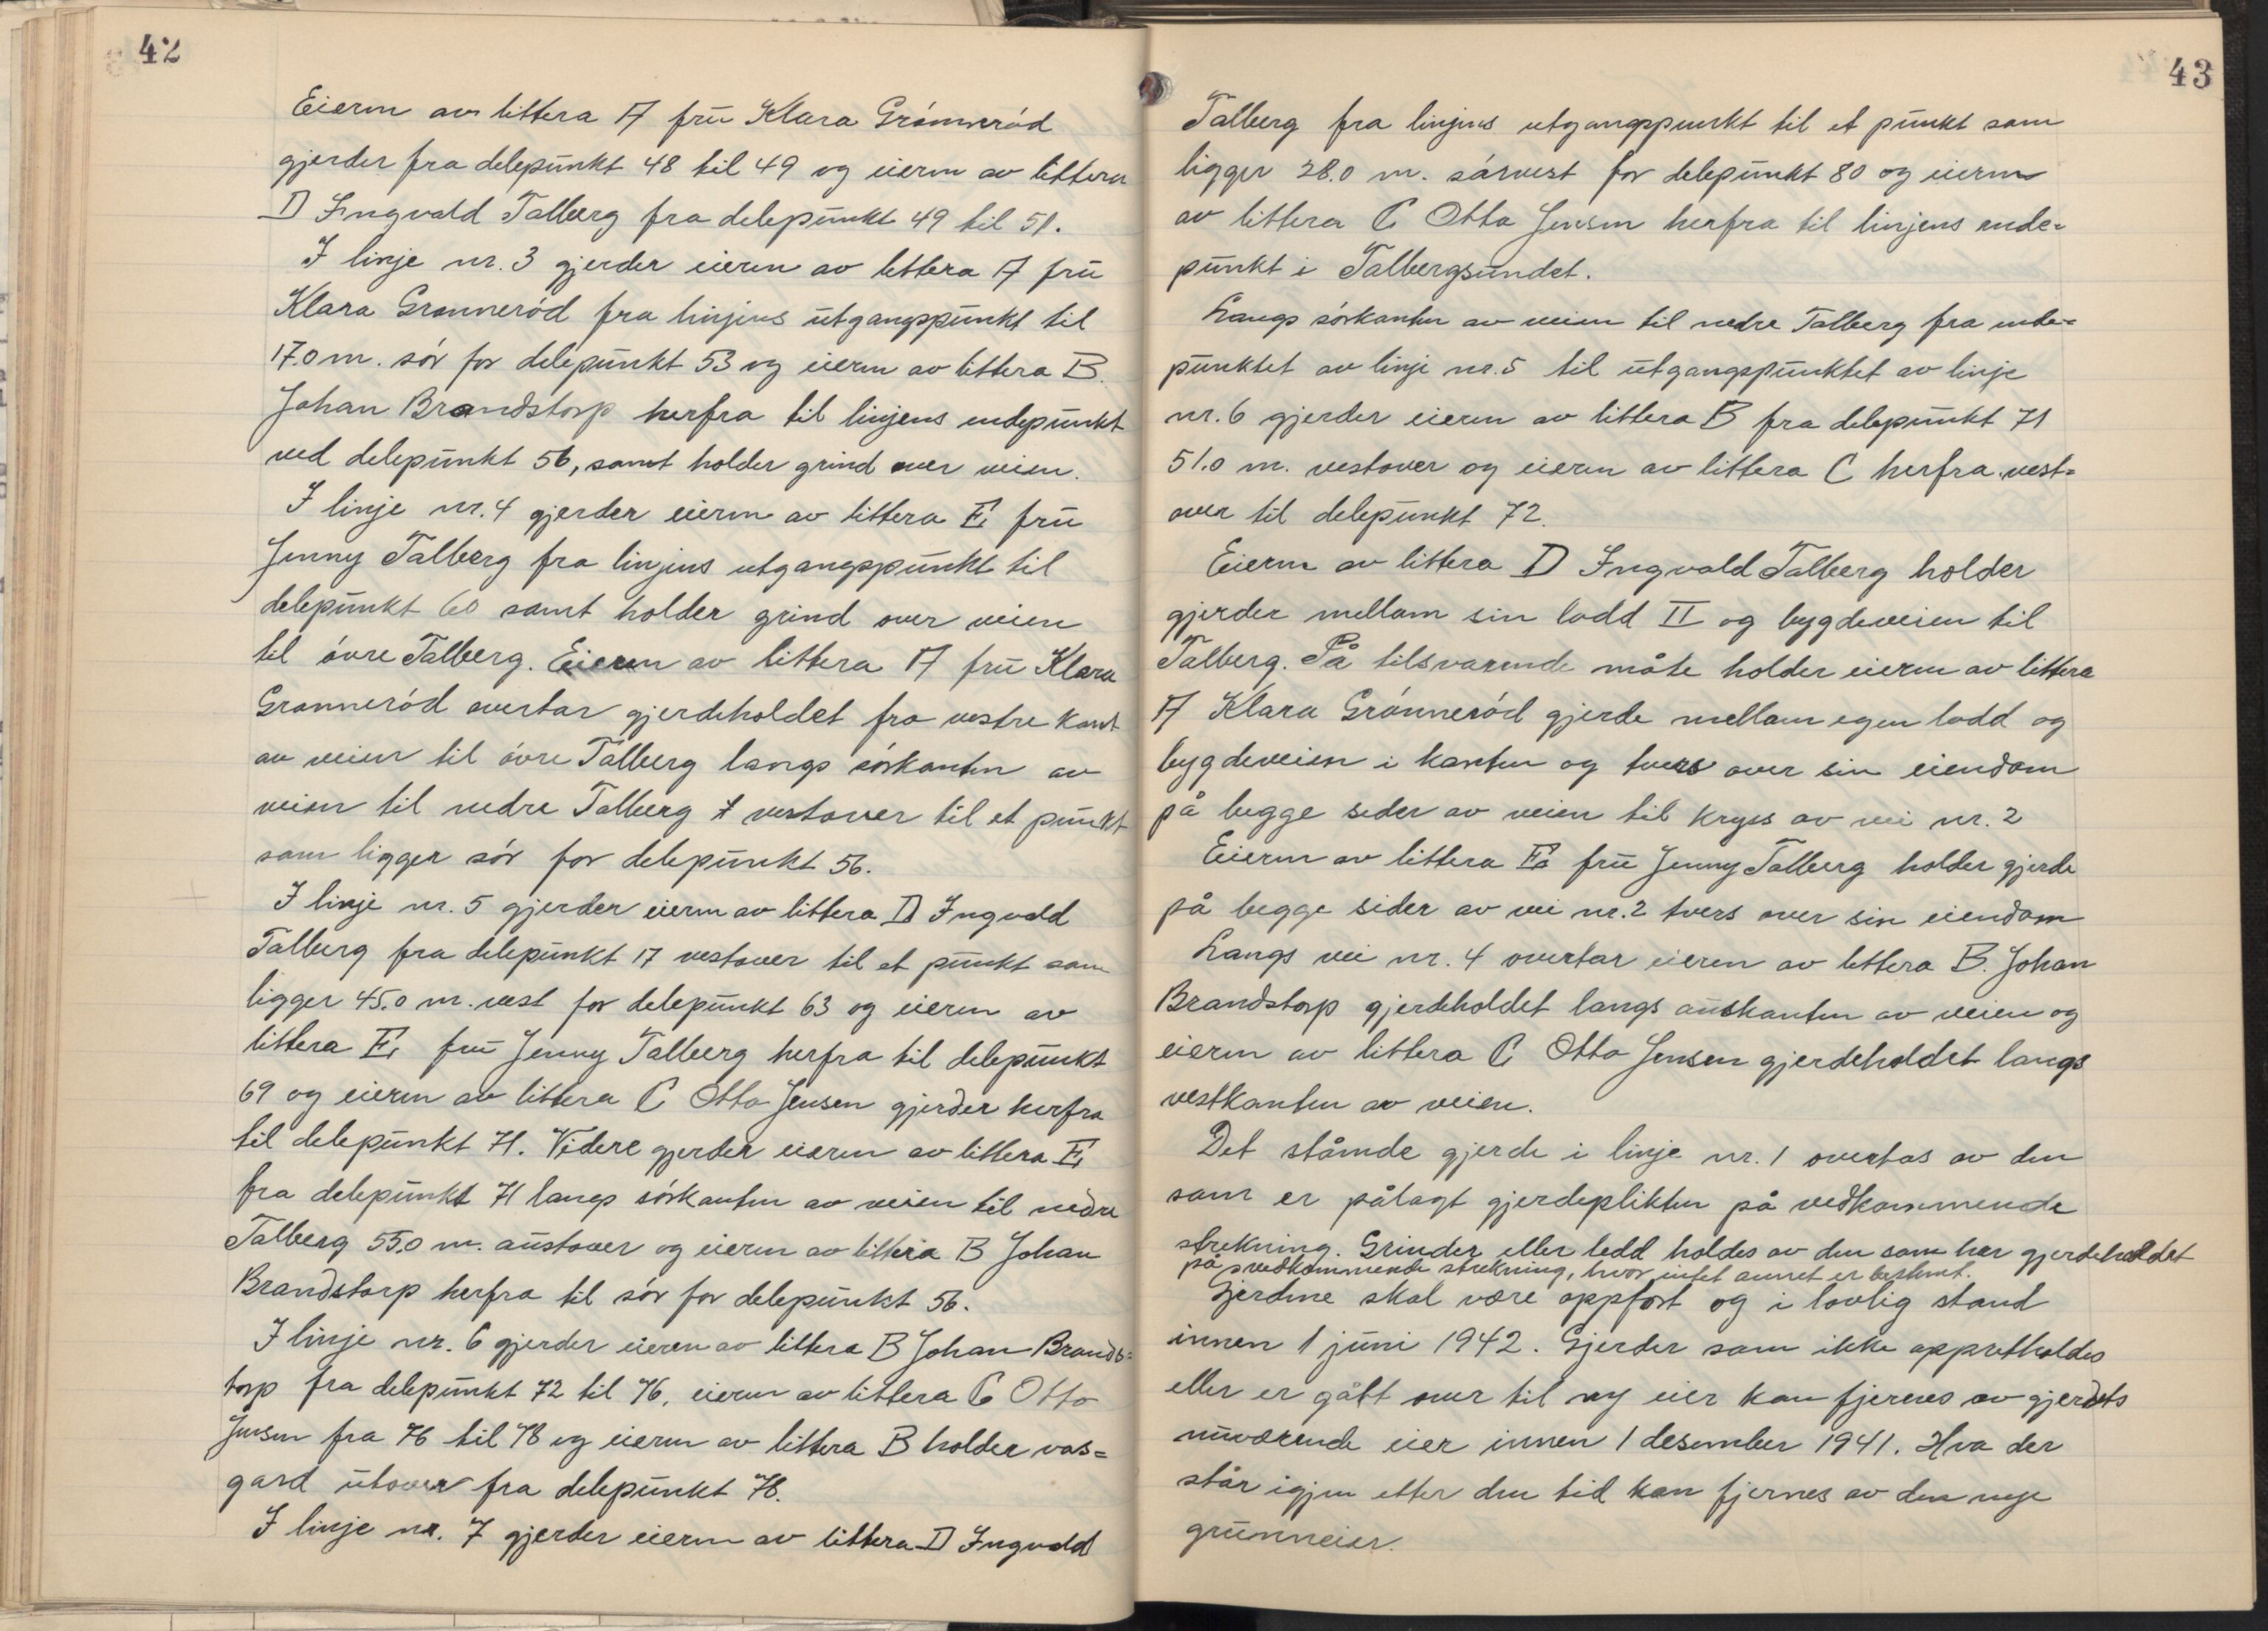 42
Eieren av littera A fru Klara Grónneród
gjerder fra delepunkt 48 til 49 og eieren av littera
D Ingvald Talberg fra delepunkt 49 til 51.
I linje nr. 3 gjerder eieren av littera A fru
Klara Gronneród fra linjens utgangspunkt til
17.0 m. sór for delepunkt 53 og eieren av littera B.
Johan Brandstorp herfra til linjens endepunkt
ved delepunkt 56, samt holder grind over veien.
I linje nr. 4 gjerder eieren av littera E fru
Jenny Talberg fra linjens utgangspunkt til
delepunkt 60 samt holder grind over veien
til óvre Talberg. Eieren av littera A fru Klara
Gronneród overtar gjerdeholdet fra vestre kant
av veien til óvre Talberg langs sórkanten av
veien til nedre Talberg vestover til et punkt
som ligger sór for delepunkt 56.
I linje nr. 5 gjerder eieren av littera D Ingvald
Talberg fra delepunkt 17 vestover til et punkt som
ligger 45.0 m. vest for delepunkt 63 og eieren av
littera E, fru Jenny Talberg herfra til delepunkt
69 og eieren av littera C Otto Jensen gjerder herfra
til delepunkt 71. Videre gjerder eieren av littera E
fra delepunkt 71 langs sórkanten av veien til nedre
Talberg 55.0 m. austover og eieren av littera B Johan
Brandstorp herfra til sór for delepunkt 56.
I linje nr. 6 gjerder eieren av littera B Johan Brands=
torp fra delepunkt 72 til 76, eieren av littera C Otto
Jensen fra 76 til 78 og eieren av littera B holder vas=
gard utover fra delepunkt 78.
I linje nr. 7 gjerder eieren av littera D Ingvald
43
Talberg fra linjens utgangspunkt til et punkt som
ligger 28.0 m. sórvest for delepunkt 80 og eieren
av littera C Otto Jensen herfra til linjens ende=
punkt i Talbergsundet.
Langs sórkanten av veien til nedre Talberg fra ende=
punktet av linje nr. 5 til utgangspunktet av linje
nr. 6 gjerder eieren av littera B fra delepunkt 71
51.0 m. vestover og eieren av littera C herfra vest=
over til delepunkt 72.
Eieren av littera D Ingvald Talberg holder
gjerder mellom sin lodd II og bygdeveien til
Talberg. På tilsvarende måte holder eieren av littera
A Klara Grónneród gjerde mellom egen lodd og
bygdeveien i kanten og tvers over sin eiendom
på begge sider av veien til kryss av vei nr. 2
Eieren av littera E fru Jenny Talberg holder gjerde
på begge sider av vei nr. 2 tvers over sin eiendom
Langs vei nr. 4 overtar eieren av littera B. Johan
Brandstorp gjerdeholdet langs austkanten av veien og
eieren av littera C Otto Jensen gjerdeholdet langs
vestkanten av veien.
Det stående gjerde i linje nr. 1 overtas av den
som er pålagt gjerdeplikten på vedkommende
strekning. Grinder eller ledd holdes av den som har gjerdeholdet
på vedkommende strekning, hvor intet annet er bestemt.
Gjerdene skal være oppfórt og i lovlig stand
innen 1 juni 1942. Gjerder som ikke oppretholdes
eller er gått over til ny eier kan fjernes av gjerdets
nuværende eier innen 1 desember 1941. Hva der
står igjen etter den tid kan fjernes av den nye
grunneier.